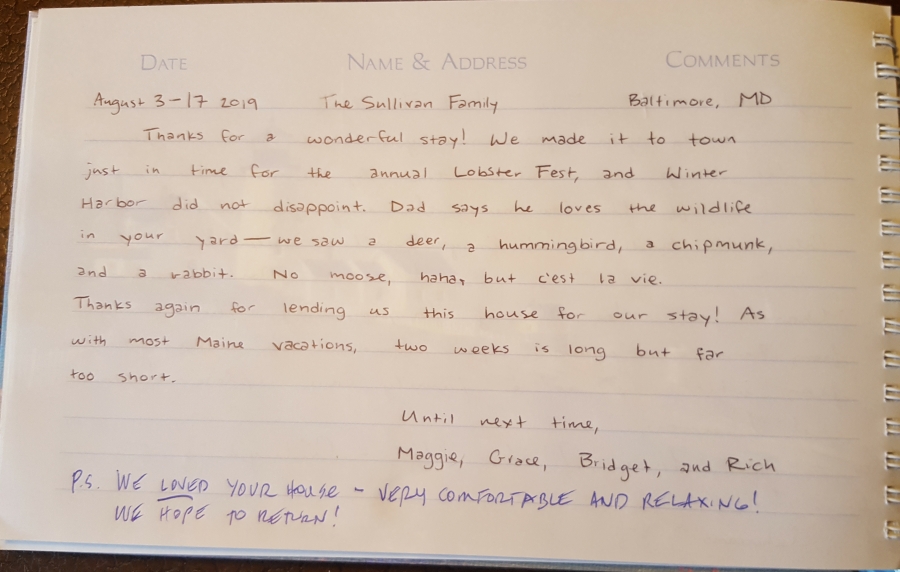 DATE NAME & ADDRESS COMMENTS
August 3-17 2019 The Sullivan Family Baltimore, MD
Thanks for a wonderful stay! We made it to town
just in time for the annual Lobster Fest, and Winter
Harbor did not disappoint. Dad says he loves the wildlife
in your yard — we saw a deer, a hummingbird, a chipmunk,
and a rabbit. No moose, haha, but c'est la vie.
Thanks again for lending us this house for our stay! As
with most Maine vacations, two weeks is long but far
too short.
Until next time,
Maggie, Grace, Bridget, and Rich
P.S. WE LOVED YOUR HOUSE - VERY COMFORTABLE AND RELAXING!
WE HOPE TO RETURN!